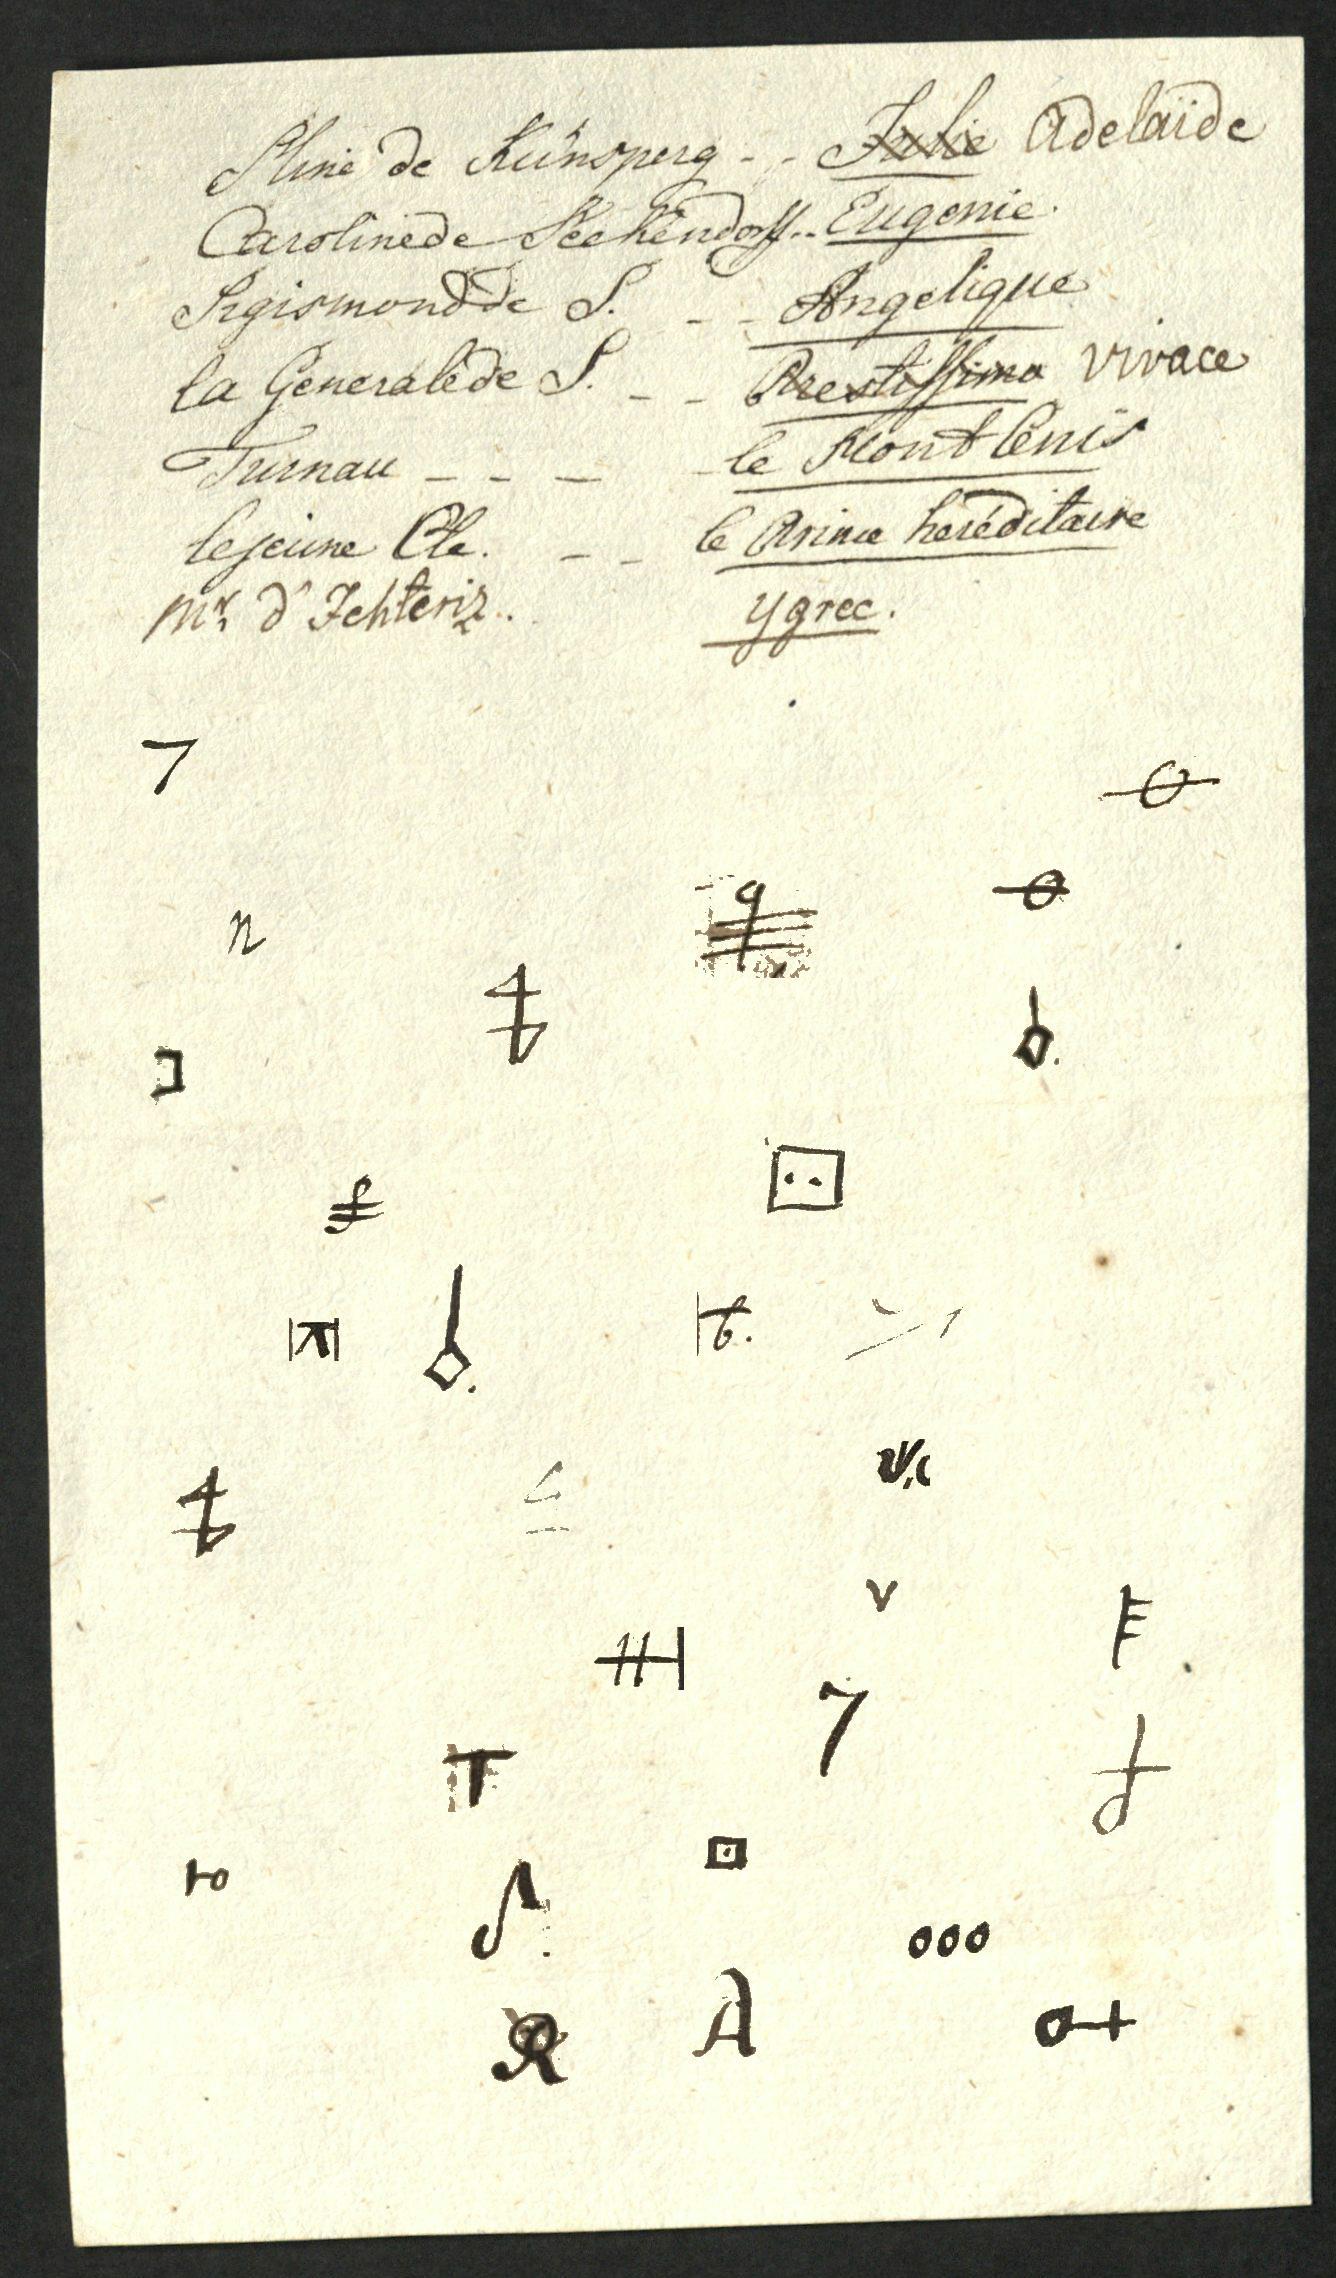 Mme de Künsperg - - Julie Adelaïde
Caroline de Seckendorff - - Eugenie.
Sigismond de S. - - Angelique
la Generale de S. - - Prestissimo Vivace
Turnau - - - le Mont Cenis
le jeune Cte. - - le Prince heréditaire
Mr. d'Ichteriz.. ygrec.
7
n
7
T
V
ooo
R A